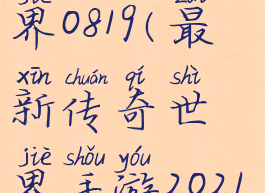 界0819(最
xīn chuán qí shì
新传奇世
jiè shǒu yóu
界手游2021